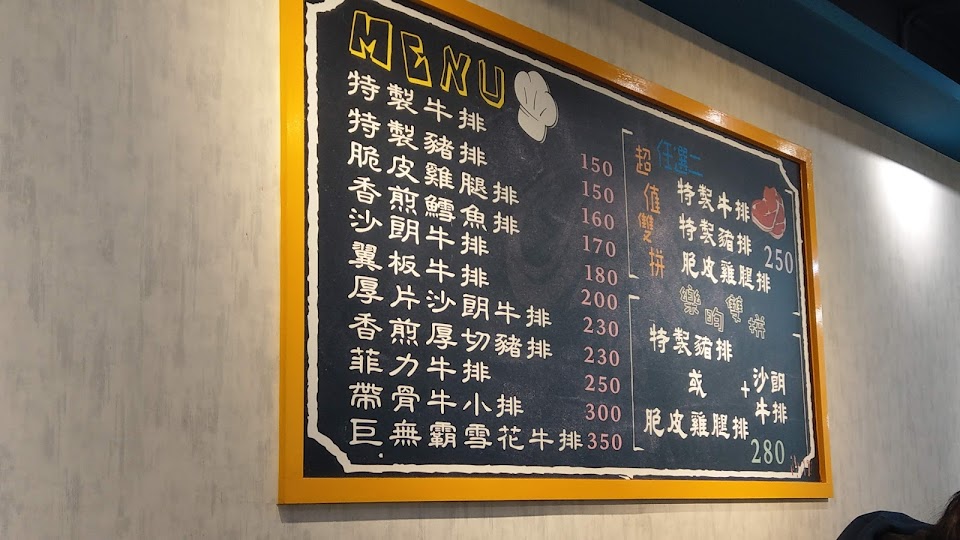 MENU
特製牛排 150
特製豬排 150
脆皮雞腿排 160
香煎鱈魚排 170
沙朗牛排 180
翼板牛排 200
厚片沙朗牛排 230
香煎厚切豬排 230
菲力牛排 250
帶骨牛小排 300
巨無霸雪花牛排 350
超值雙拼
任選二
特製牛排
特製豬排
脆皮雞腿排
250
樂昀雙拼
特製豬排
或
脆皮雞腿排
+沙朗
牛排
280